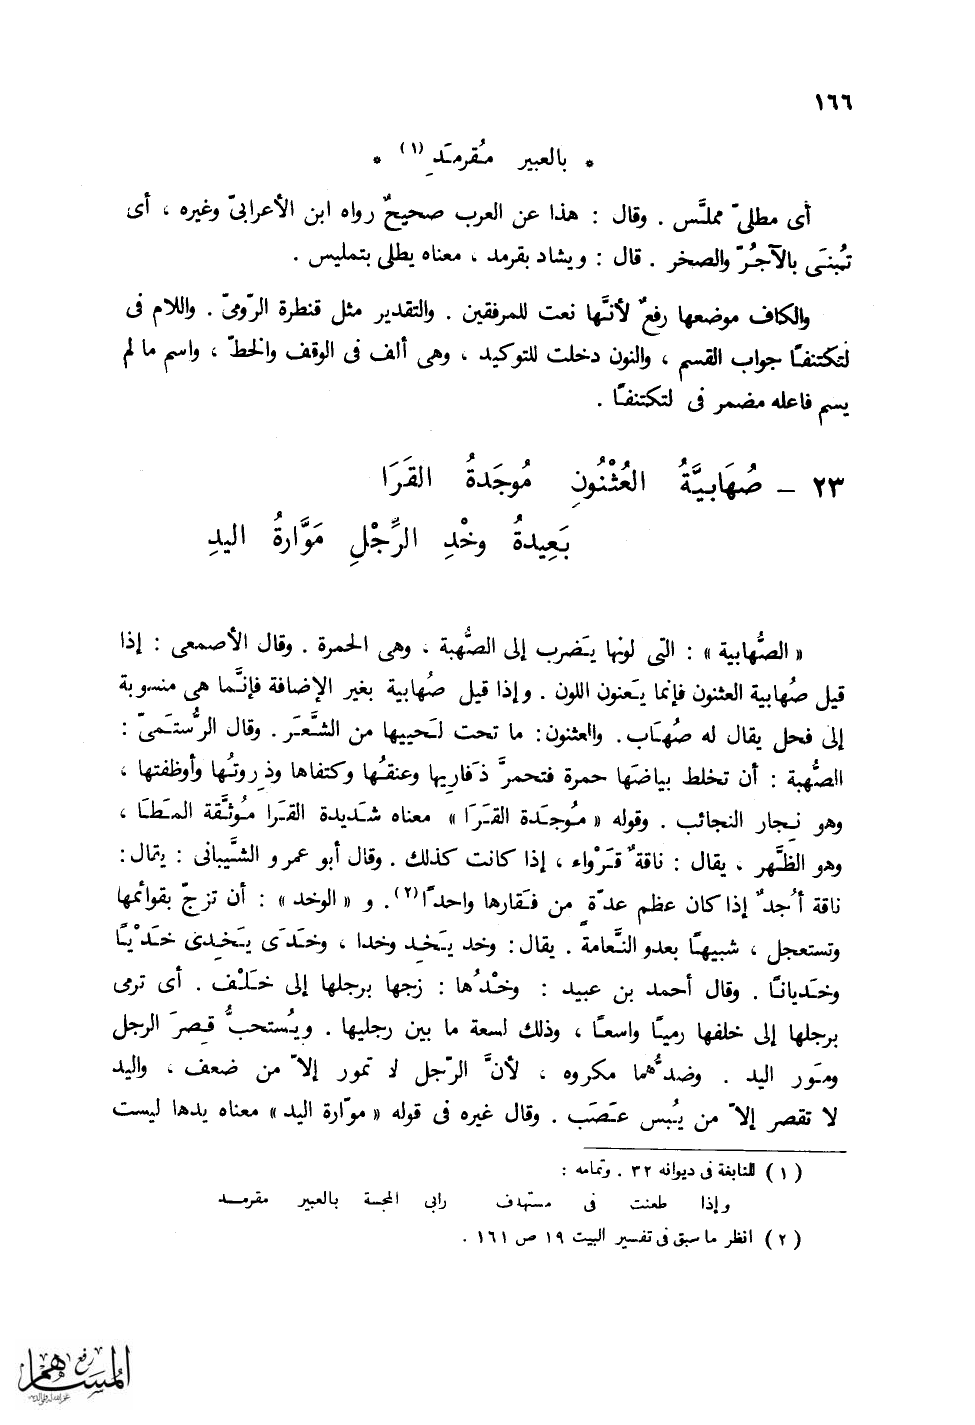 ١٦٦
* بالعبير مُقرمَدِ (١) *
أى مطلىّ مملَّس . وقال : هذا عن العرب صحيحٌ رواه ابن الأعرابىّ وغيره ، أى
تُبنَى بالآجُرّ والصخر . قال : ويشاد بقرمد ، معناه يطلى بتمليس .
والكاف موضعها رفعٌ لأنَّها نعت للمرفقين . والتقدير مثل قنطرة الرّومىّ . واللام فى
لَتكتنفًا جواب القسم ، والنون دخلت للتوكيد ، وهى ألف فى الوقف والخطّ ، واسم ما لم
يسم فاعله مضمر فى لتكتنفًا .
٢٣ – صُهَابيَّةُ العُثْنُونِ مُوجَدةُ القَرَا
بَعِيدةُ وخْدِ الرِّجْلِ مَوَّارةُ اليدِ
« الصُّهابية » : التى لونها يَضرب إلى الصُّهبة ، وهى الحمرة . وقال الأصمعى : إذا
قيل صُهابية العثنون فإنما يَعنون اللون . وإذا قيل صُهابية بغير الإضافة فإنَّما هى منسوبة
إلى فحل يقال له صُهَاب. والعثنون: ما تحت لَحييها من الشَّعَر . وقال الرُّستَمىّ :
الصُّهبة : أن تخلط بياضَها حمرة فتحمرَّ ذَفاريها وعنقُها وكتفاها وذِروتُها وأوظفتها ،
وهو نِجار النجائب . وقوله « مُوجَدة القَرَا » معناه شَديدة القَرا مُوثَّقة المَطَا ،
وهو الظَّهر ، يقال : ناقةٌ قَرْواء ، إذا كانت كذلك . وقال أبو عمرو الشَّيبانى : يقال :
ناقة أُجدٌ إذا كان عظم عدّةٍ من فَقارها واحدًا(٢). و « الوخد » : أن تزجّ بقوائمها
وتستعجل ، شبيهًا بعدو النَّعامة . يقال: وخد يَخِد وخدا ، وخَدَى يَخِدى خَدْيًا
وخَديانًا . وقال أحمد بن عبيد : وخْدُها : زجها برجلها إلى خَلْف . أى ترمى
برجلها إلى خلفها رميًا واسعًا ، وذلك لسعة ما بين رجليها . ويُستحبُّ قِصرَ الرجل
ومَور اليد . وضدُّهما مكروه ، لأنَّ الرّجل لا تمور إلاّ من ضعف ، واليد
لا تقصر إلاّ من يُبس عَصَب . وقال غيره فى قوله « موّارة اليد » معناه يدها ليست
(١) للنابغة فى ديوانه ٣٢ . وتمامه :
وإذا طعنت فى مستهدف رابى المجسة بالعبير مقرمد
(٢) انظر ما سبق فى تفسير البيت ١٩ ص ١٦١ .
رفع
المساهم